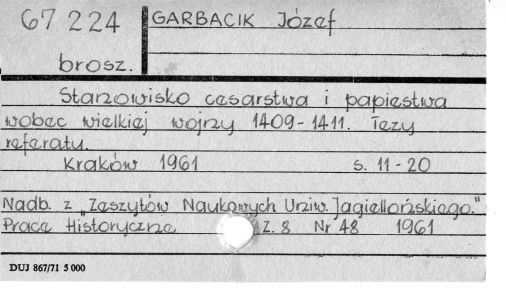 67 224
GARBACIK Józef
brosz.
Stanowisko cesarstwa i papiestwa
wobec wielkiej wojny 1409-1411. Tezy
referatu.
Kraków 1961 s. 11-20
Nadb. z „Zeszytów Naukowych Uniw. Jagiellońskiego."
Prace Historyczne Z. 8 Nr 48 1961
DUJ 867/71 5 000